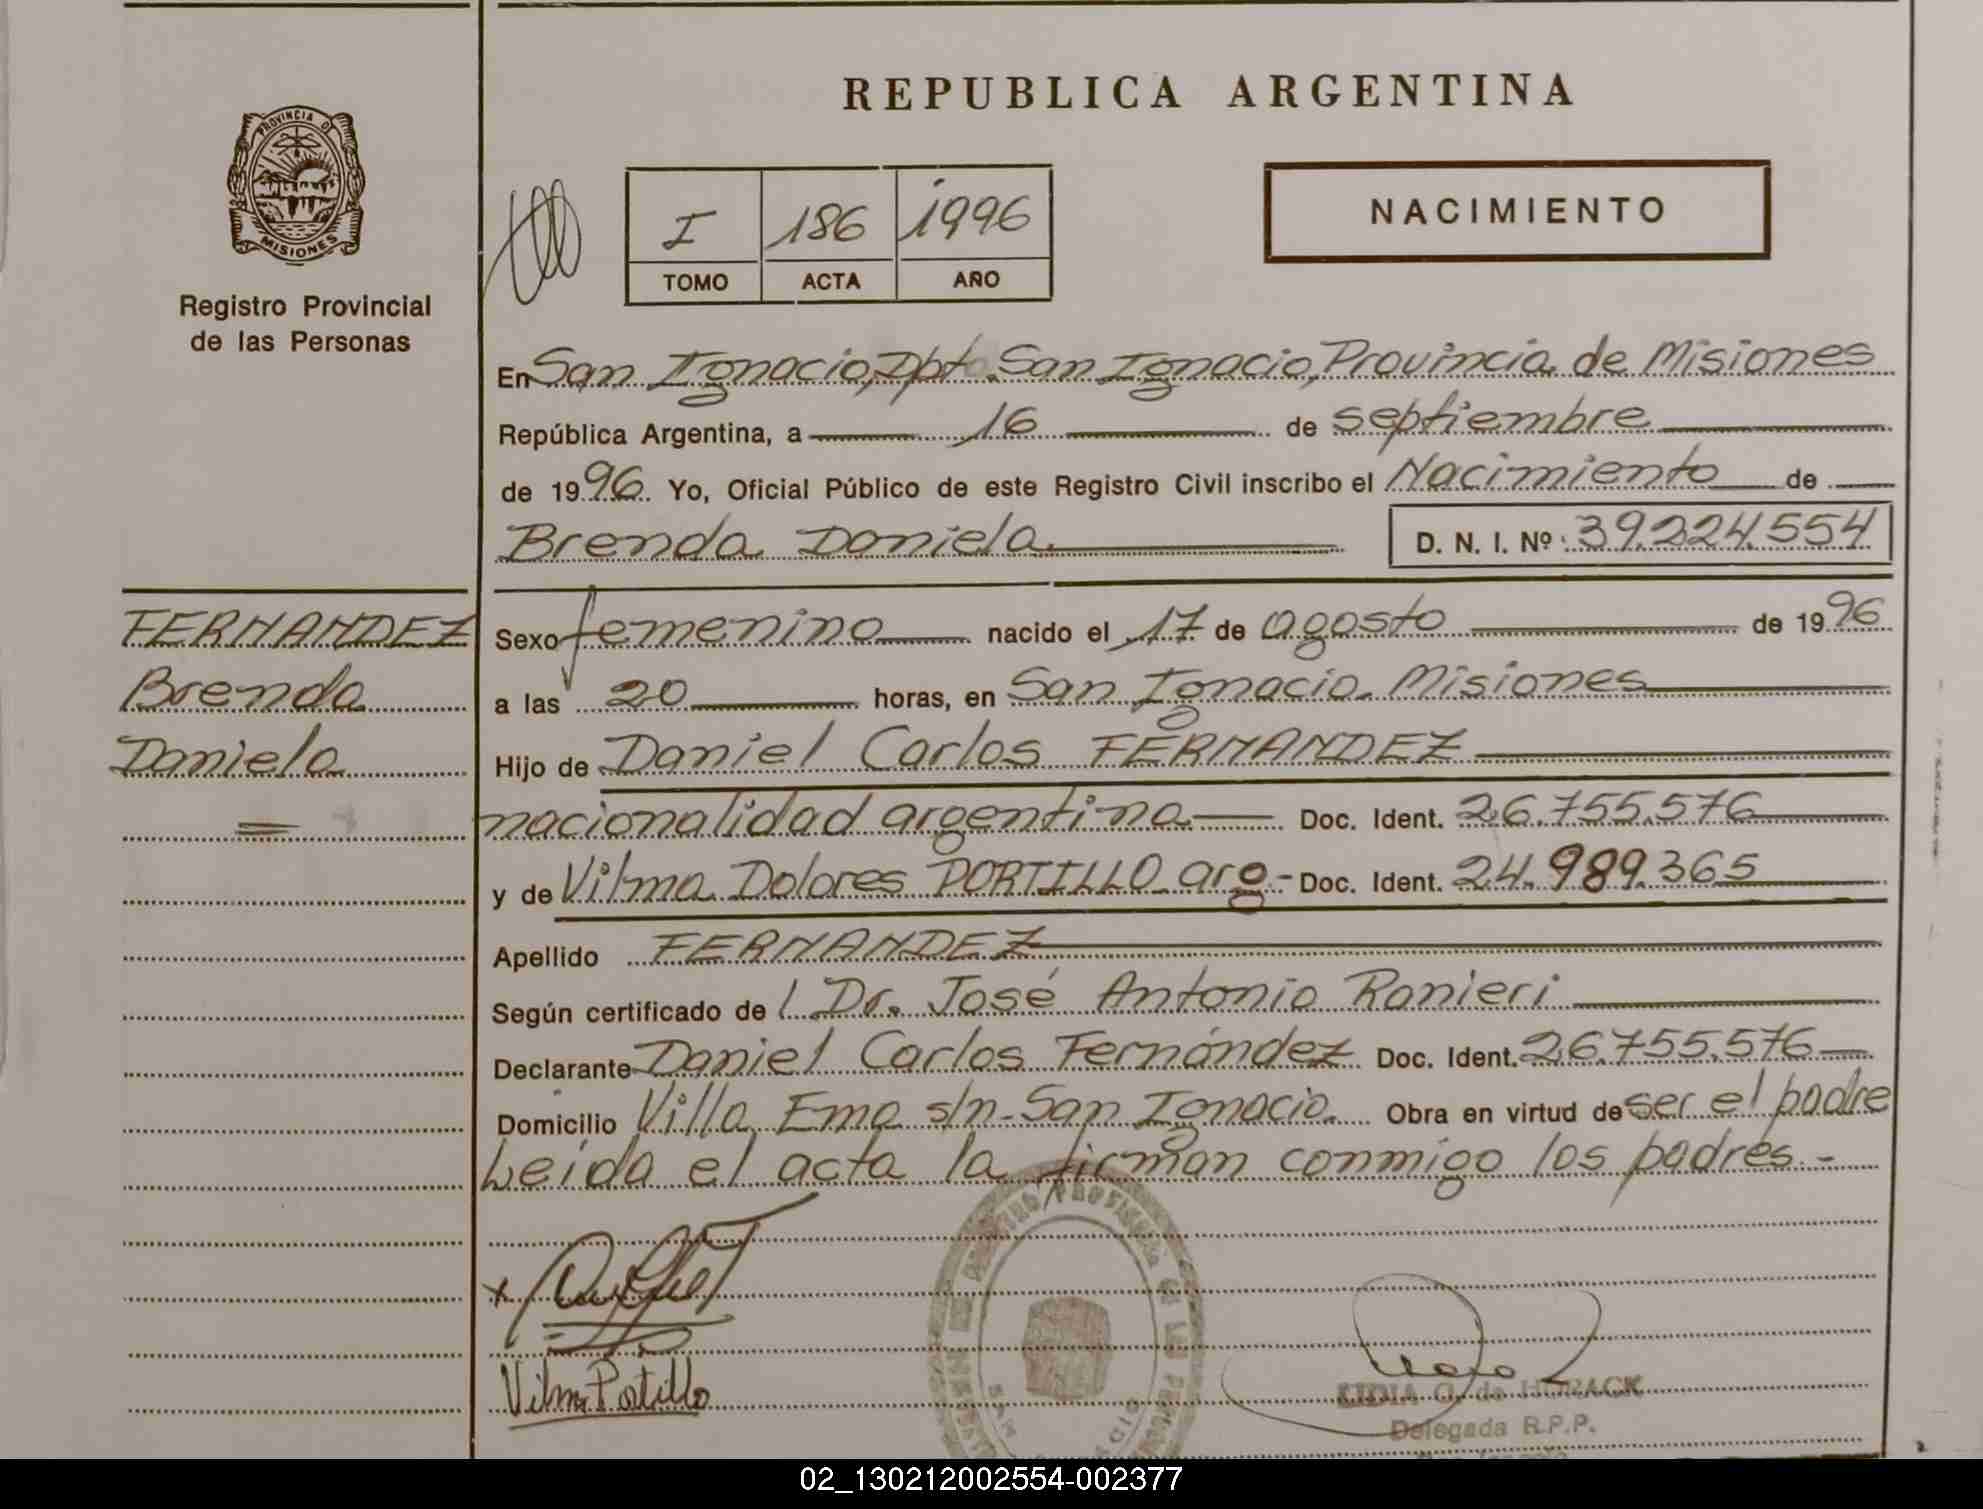 REPUBLICA ARGENTINA
PROVINCIA DE
MISIONES
Registro Provincial
de las Personas
I 186 1996
TOMO ACTA AÑO
NACIMIENTO
En San Ignacio, Dpto. San Ignacio, Provincia de Misiones
República Argentina, a 16 de septiembre
de 1996. Yo, Oficial Público de este Registro Civil inscribo el Nacimiento de
Brenda Daniela. D. N. I. Nº 39.224.554
FERNANDEZ
Brenda
Daniela
Sexo femenino nacido el 17 de agosto de 1996
a las 20 horas, en San Ignacio. Misiones
Hijo de Daniel Carlos FERNANDEZ
nacionalidad argentina Doc. Ident. 26.755.576
y de Vilma Dolores PORTILLO arg- Doc. Ident. 24.989.365
Apellido FERNANDEZ
Según certificado de Dr. José Antonio Ranieri
Declarante Daniel Carlos Fernández Doc. Ident. 26.755.576
Domicilio Villa Ema s/n- San Ignacio. Obra en virtud de ser el padre
Leída el acta la firman conmigo los padres.-
Vilma Portillo
LIDIA G. de HORACK
Delegada R.P.P.
02_130212002554-002377